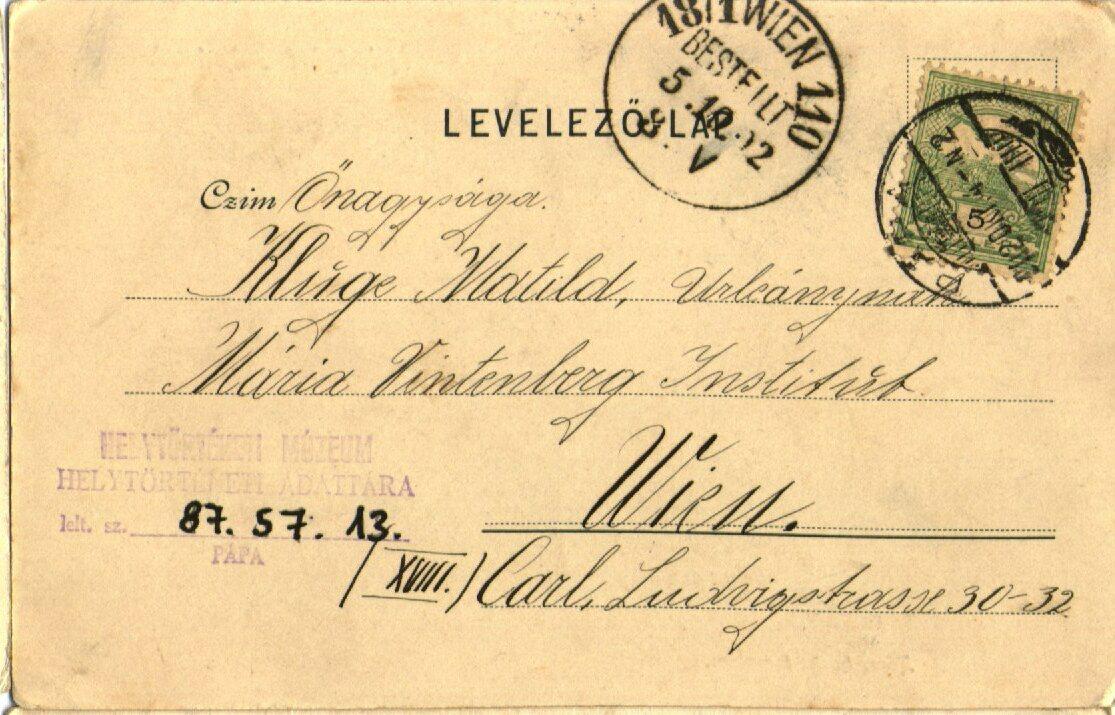 18/1 WIEN 110
BESTELLT
5.12.02
8. V
LEVELEZŐ-LAP
Czim Őnagysága.
Kluge Matild, Urbánynmá
Mária Vintenberg Institut.
Wien.
HELYTÖRTÉNETI MÚZEUM
HELYTÖRTÉNETI ADATTÁRA
lelt. sz. 87. 57. 13.
PÁPA
(XVIII.) Carl, Ludvigstrasse 30-32